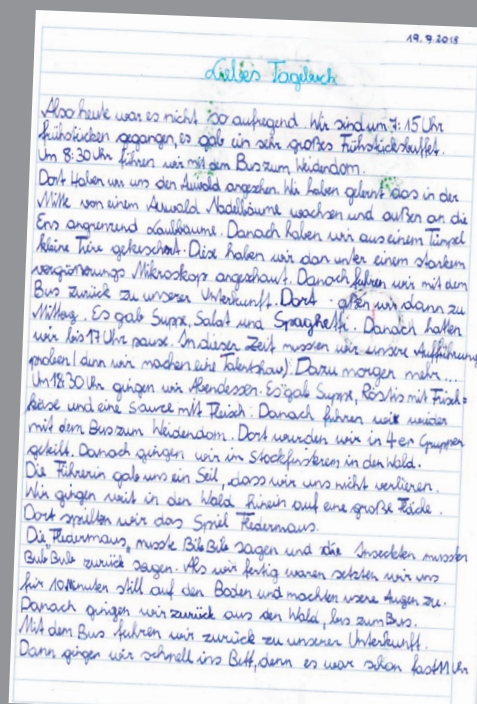 19.9.2018
Liebes Tagebuch
Also heute war es nicht so aufregend. Wir sind um 7:15 Uhr
frühstücken gegangen, es gab ein sehr großes Frühstücksbuffet.
Um 8:30 Uhr führen wir mit dem Bus zum Weidendom.
Dort Haben wir uns den Auwald angesehen. Wir haben gelernt das in der
Mitte von einem Auwald Nadelbäume wachsen und außen an die
Ens angrenend Laubbäume. Danach haben wir aus einem Tümpel
kleine Tiere gekeschert. Diese haben wir dan unter einem starkem
vergrößerungs Mikroskop angeschaut. Danach fuhren wir mit dem
Bus zurück zu unserer Unterkunft. Dort aßen wir dann zu
Mittag. Es gab Suppe, Salat und Spaghetti. Danach hatten
wir bis 17 Uhr pause. In dieser Zeit mussten wir unsere Aufführung
proben (denn wir machen eine Talentshow). Dazu morgen mehr...
Um 18:30 Uhr gingen wir Abendessen. Es gab Suppe, Röstis mit Frisch=
käse und eine Sauce mit Fleisch. Danach fuhren wir wieder
mit dem Bus zum Weidendom. Dort wurden wir in 4er Gruppen
geteilt. Danach gingen wir im Stockfinsteren in den Wald.
Die Führerin gab uns ein Seil, dass wir uns nicht verlieren.
Wir gingen weit in den Wald hinein auf eine große Fläche.
Dort spielten wir das Spiel Fledermaus.
Die "Fledermaus" musste Bib Bib sagen und die Insekten mussten
Bub Bub zurück sagen. Als wir fertig waren setzten wir uns
für 10 Minuten still auf den Boden und machten unsere Augen zu.
Danach gingen wir zurück aus den Wald, bis zum Bus.
Mit dem Bus fuhren wir zurück zu unserer Unterkunft.
Dann gingen wir schnell ins Bett, denn es war schon fast 11 Uhr